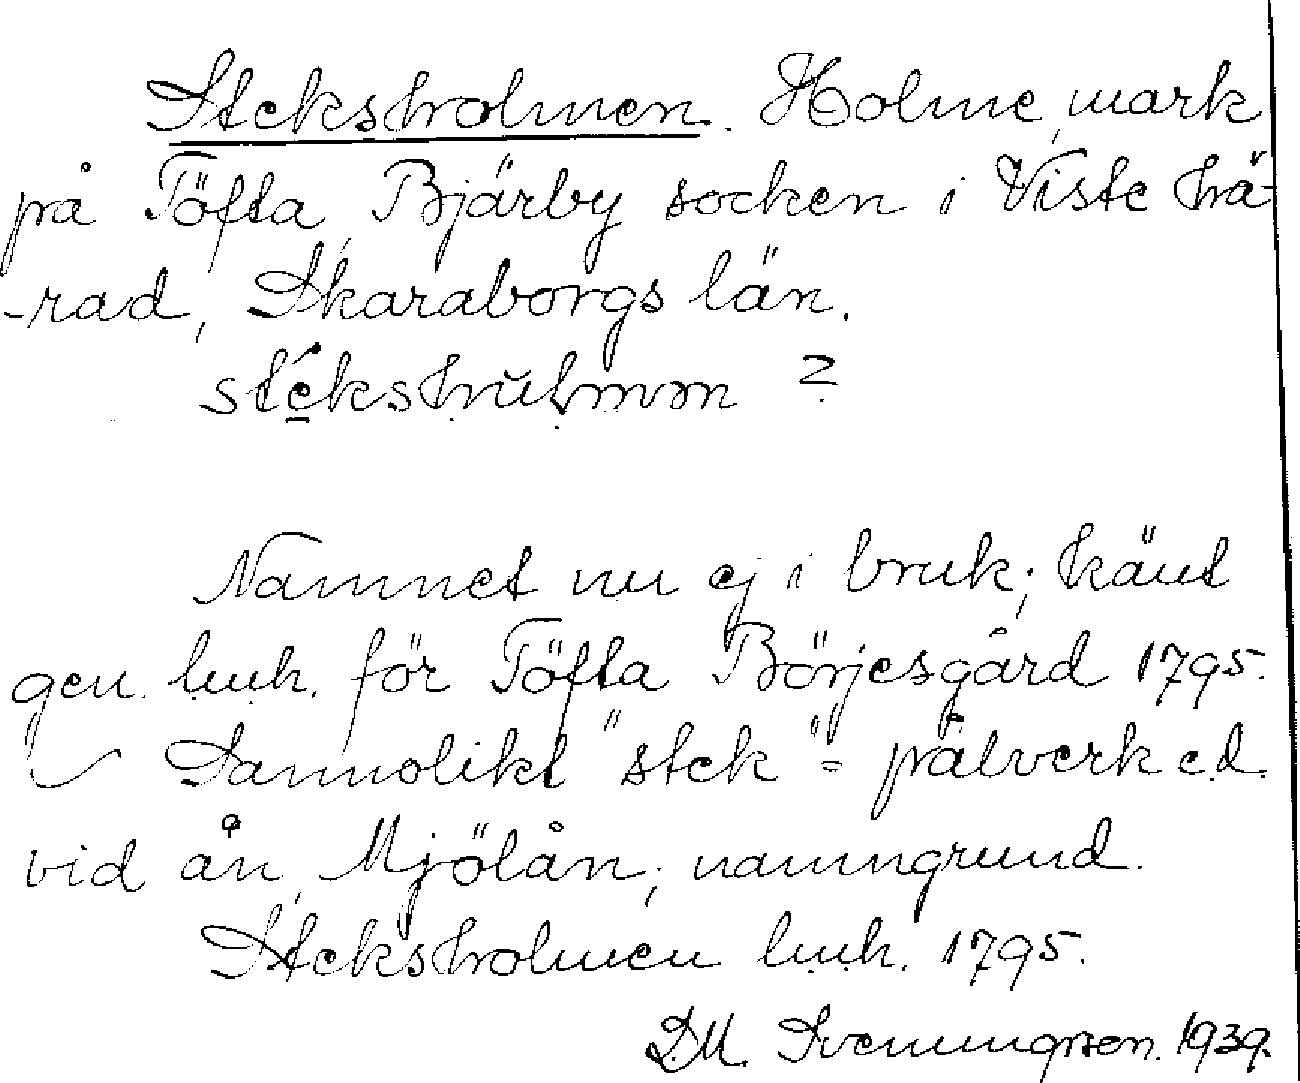 Steksholmen. Holme, mark
på Töfta, Bjärby socken i Viste hä-
-rad, Skaraborgs län.
Namnet nu ej i bruk; känt
gen. lmh. för Töfta Börjesgård 1795.
Sannolikt "stek" = pålverk e.d.
vid ån, Mjölån, namngrund.
Steksholmen lmh. 1795.
D.M. Svenningson. 1939.